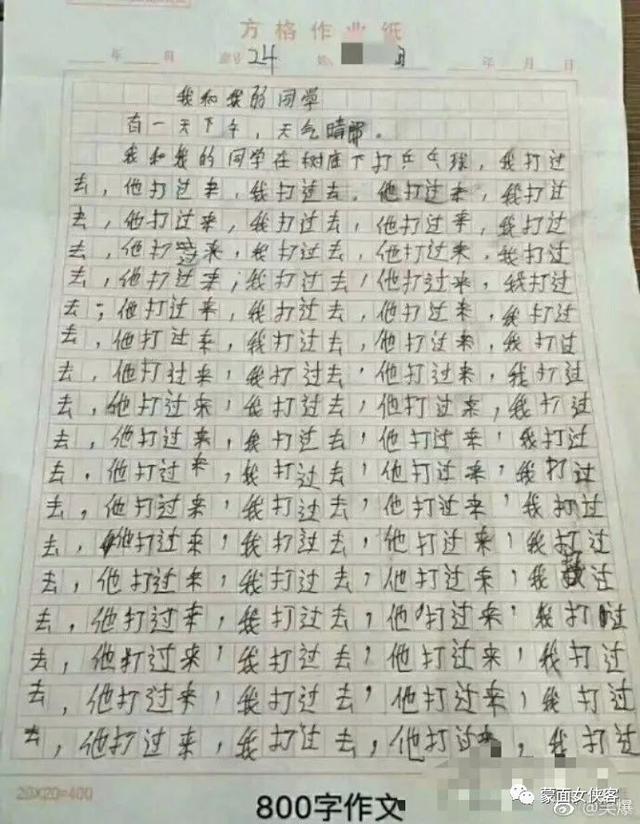 方格作业纸
年 月 24 年 月 日
我和我的同学
有一天下午，天气晴朗。
我和我的同学在树底下打乒乓球，我打过
去，他打过来，我打过去，他打过来，我打过
去，他打过来，我打过去，他打过来，我打过
去，他打过来，我打过去，他打过来，我打过
去，他打过来，我打过去，他打过来，我打过
去，他打过来，我打过去，他打过来，我打过
去，他打过来，我打过去，他打过来，我打过
去，他打过来，我打过去，他打过来，我打过
去，他打过来，我打过去，他打过来，我打过
去，他打过来，我打过去，他打过来，我打过
去，他打过来，我打过去，他打过来，我打过
去，他打过来，我打过去，他打过来，我打过
去，他打过来，我打过去，他打过来，我打过
去，他打过来，我打过去，他打过来，我过
去，他打过来，我打过去，他打过来，我打过
去，他打过来，我打过去，他打过来，我打过
去，他打过来，我打过去，他打过来，我打过
去，他打过来，我打过去，他打过来，我打过
20X20=400
800字作文
蒙面女侠客